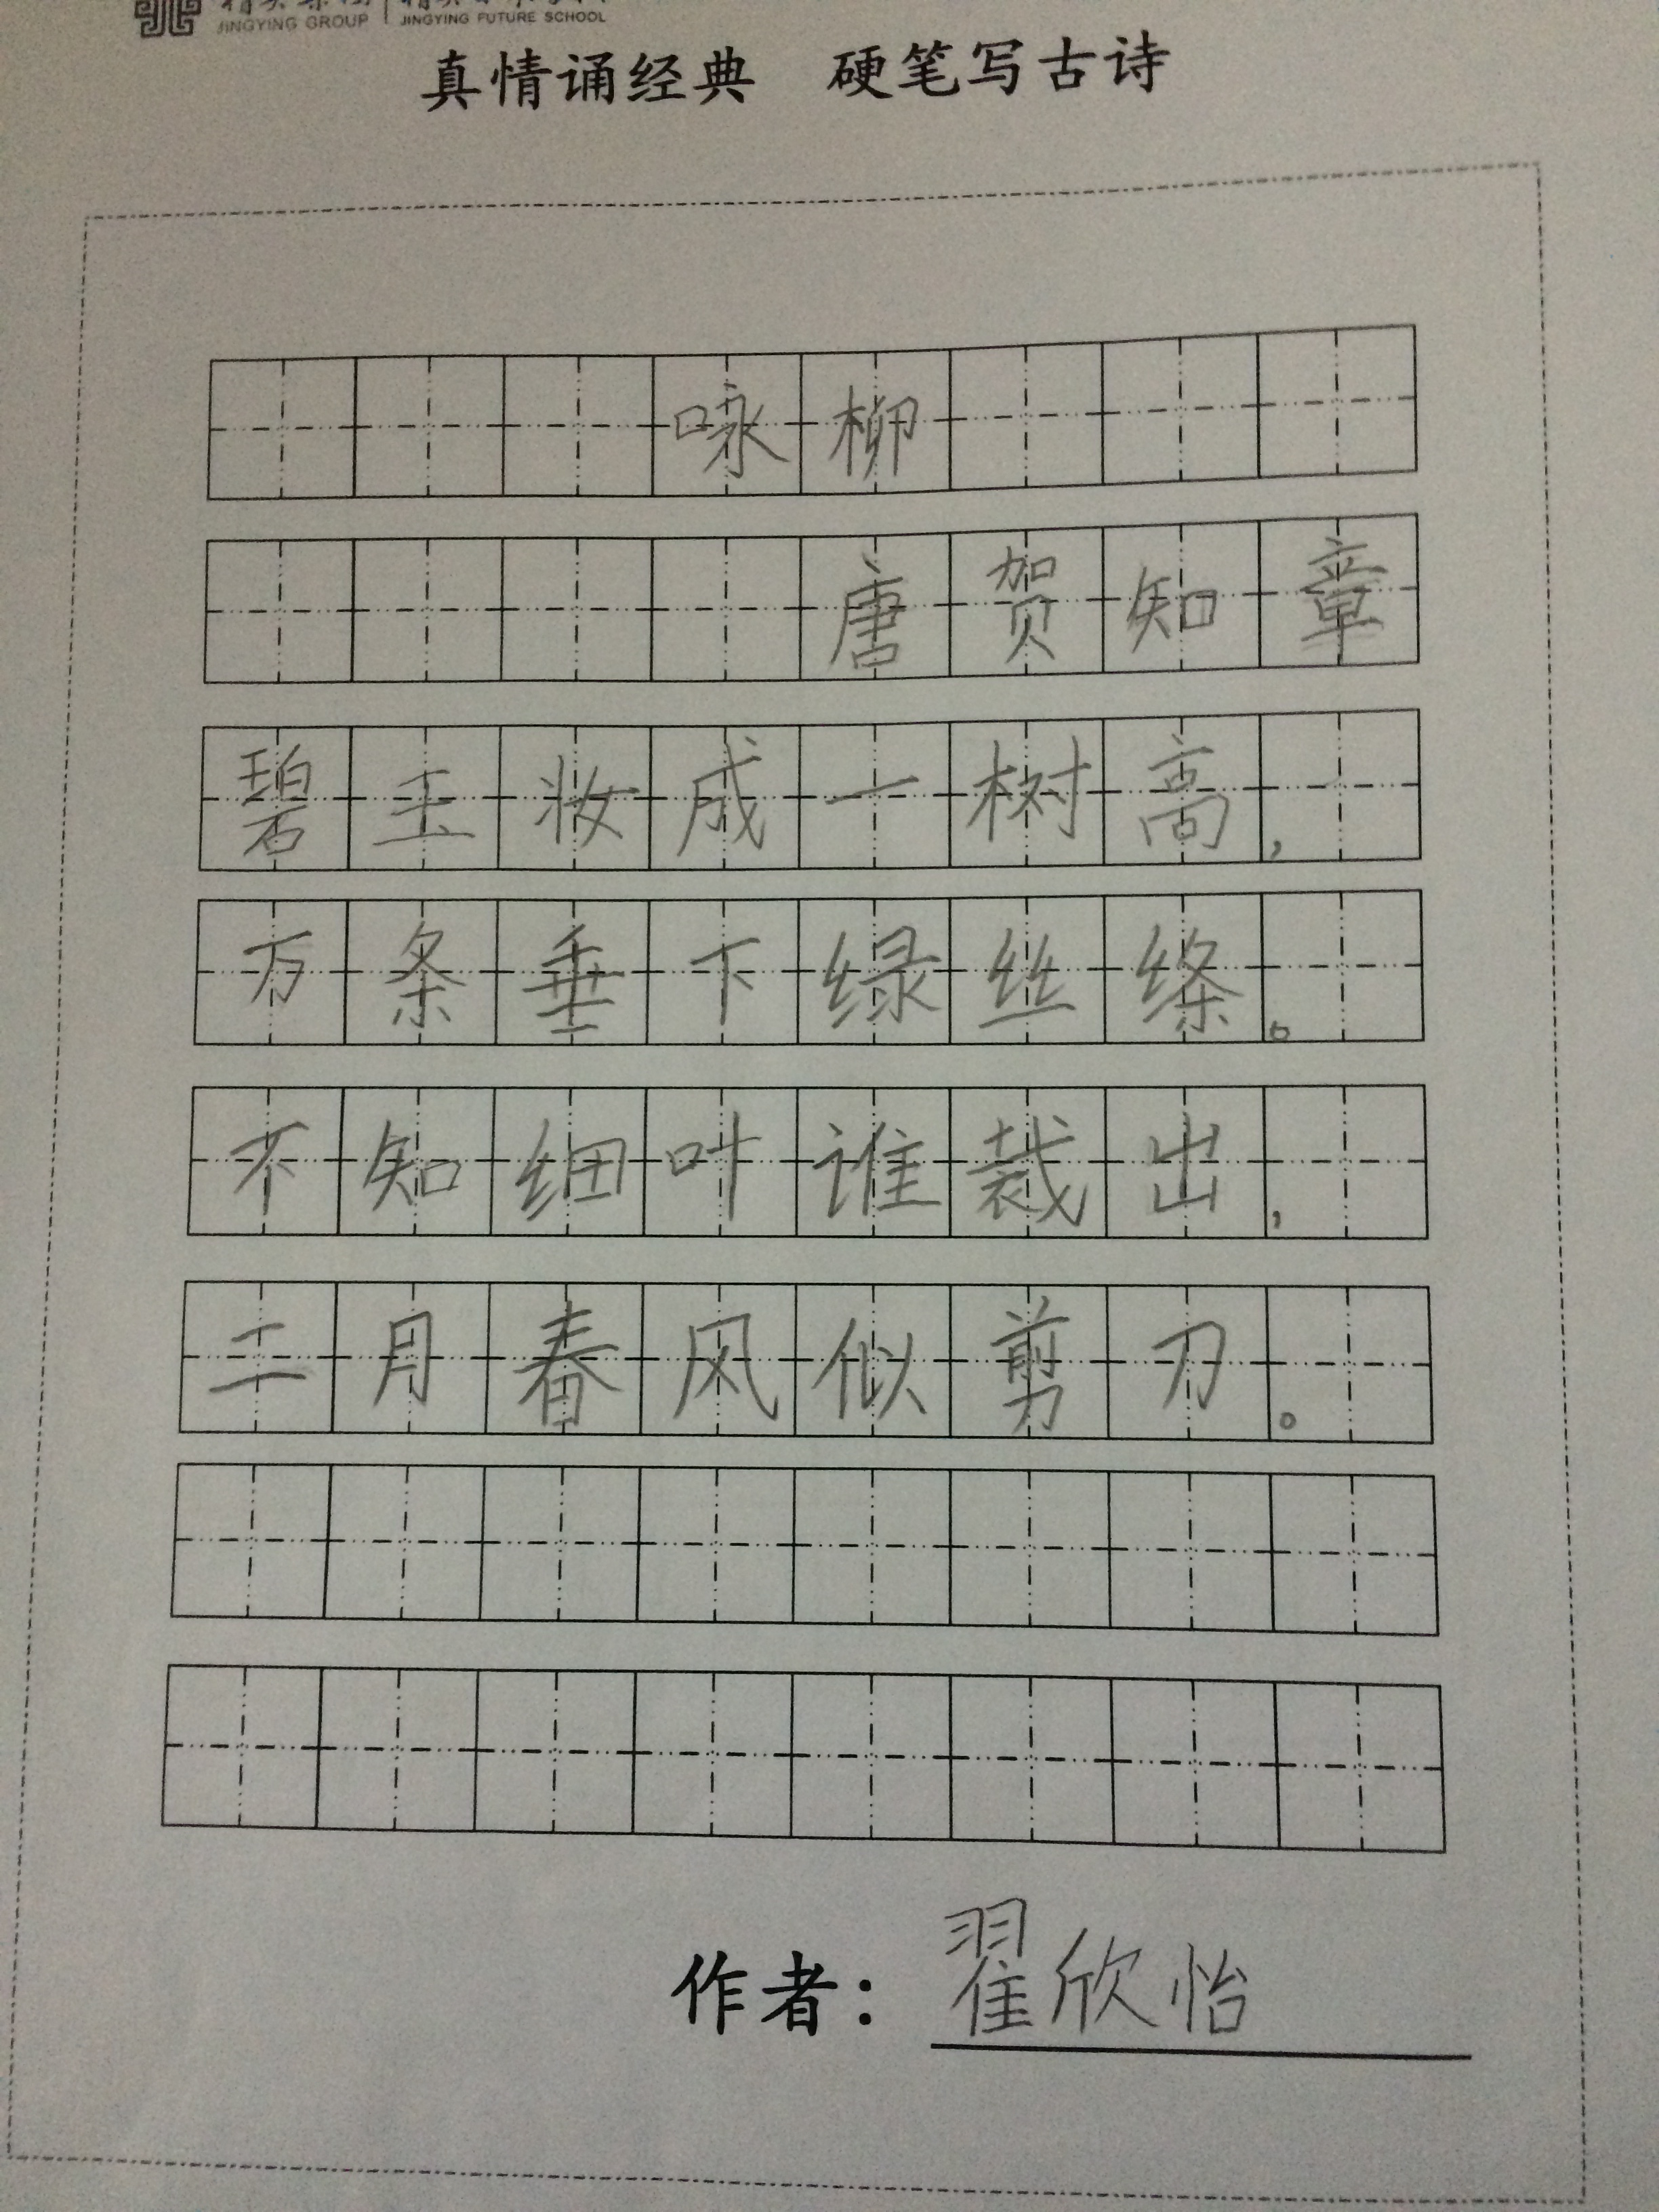 JINGYING GROUP JINGYING FUTURE SCHOOL
真情诵经典 硬笔写古诗
咏柳
唐贺知章
碧玉妆成一树高，
万条垂下绿丝绦。
不知细叶谁裁出，
二月春风似剪刀。
作者：翟欣怡